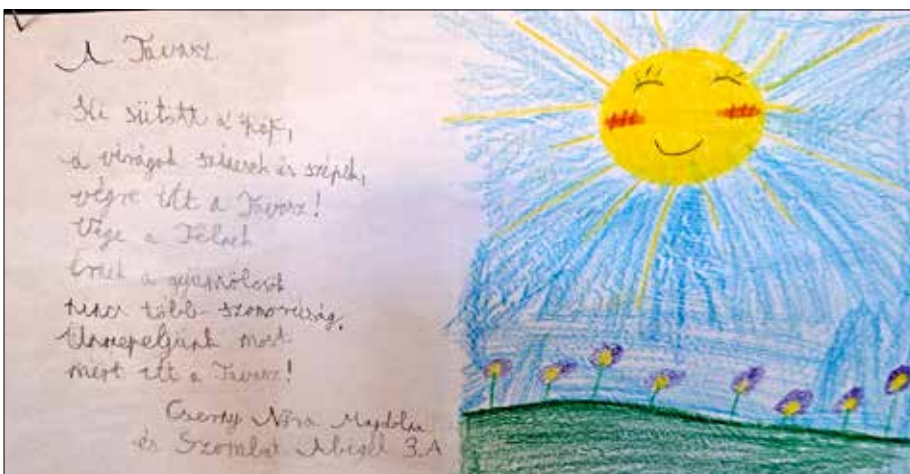 A Tavasz
Ki sütött a nap,
a virágok színesek és szépek,
végre itt a Tavasz!
Vége a Télnek
érnek a gyümölcsök
nincs több szomorúság.
Ünnepeljünk most
mert itt a Tavasz!
Cserny Nóra Magdolna
és Szombat Abigél 3.A